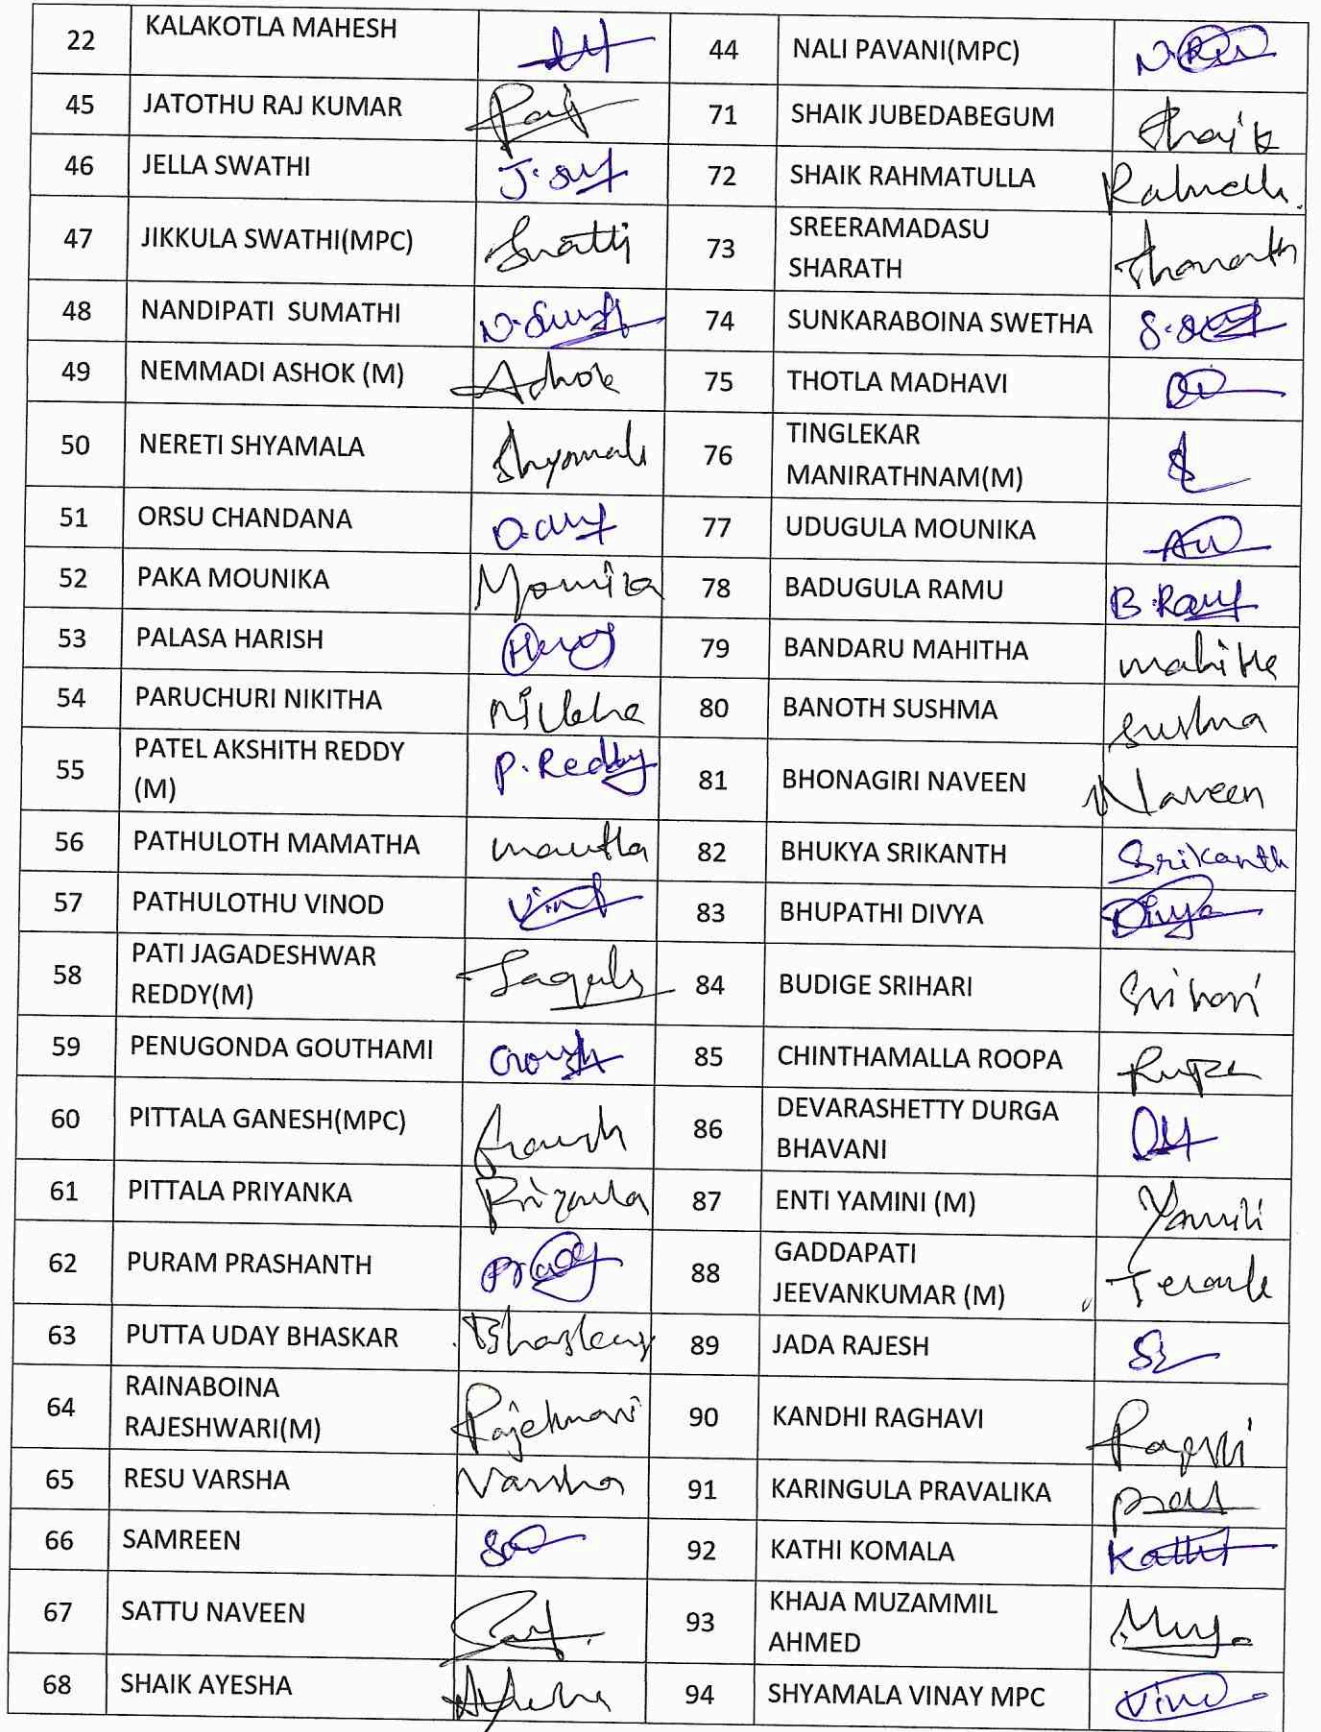 22 KALAKOTLA MAHESH 44 NALI PAVANI(MPC)
45 JATOTHU RAJ KUMAR Raj 71 SHAIK JUBEDABEGUM Shaik
46 JELLA SWATHI 72 SHAIK RAHMATULLA
47 JIKKULA SWATHI(MPC) Swathi 73 SREERAMADASU
SHARATH
48 NANDIPATI SUMATHI 74 SUNKARABOINA SWETHA
49 NEMMADI ASHOK (M) Ashok 75 THOTLA MADHAVI
50 NERETI SHYAMALA Shyamala 76 TINGLEKAR
MANIRATHNAM(M)
51 ORSU CHANDANA 77 UDUGULA MOUNIKA
52 PAKA MOUNIKA Mounika 78 BADUGULA RAMU B.Ramu
53 PALASA HARISH 79 BANDARU MAHITHA mahitha
54 PARUCHURI NIKITHA Nikitha 80 BANOTH SUSHMA Sushma
55 PATEL AKSHITH REDDY P.Reddy
(M) 81 BHONAGIRI NAVEEN Naveen
56 PATHULOTH MAMATHA mamatha 82 BHUKYA SRIKANTH Srikanth
57 PATHULOTHU VINOD 83 BHUPATHI DIVYA Divya
58 PATI JAGADESHWAR
REDDY(M) 84 BUDIGE SRIHARI Srihari
59 PENUGONDA GOUTHAMI 85 CHINTHAMALLA ROOPA Rupa
60 PITTALA GANESH(MPC) 86 DEVARASHETTY DURGA
BHAVANI
61 PITTALA PRIYANKA Priyanka 87 ENTI YAMINI (M) Yamini
62 PURAM PRASHANTH 88 GADDAPATI
JEEVANKUMAR (M)
63 PUTTA UDAY BHASKAR Bhaskar 89 JADA RAJESH
64 RAINABOINA
RAJESHWARI(M) Rajeshwari 90 KANDHI RAGHAVI
65 RESU VARSHA Varsha 91 KARINGULA PRAVALIKA
66 SAMREEN 92 KATHI KOMALA Kathi
67 SATTU NAVEEN 93 KHAJA MUZAMMIL
AHMED
68 SHAIK AYESHA Ayesha 94 SHYAMALA VINAY MPC